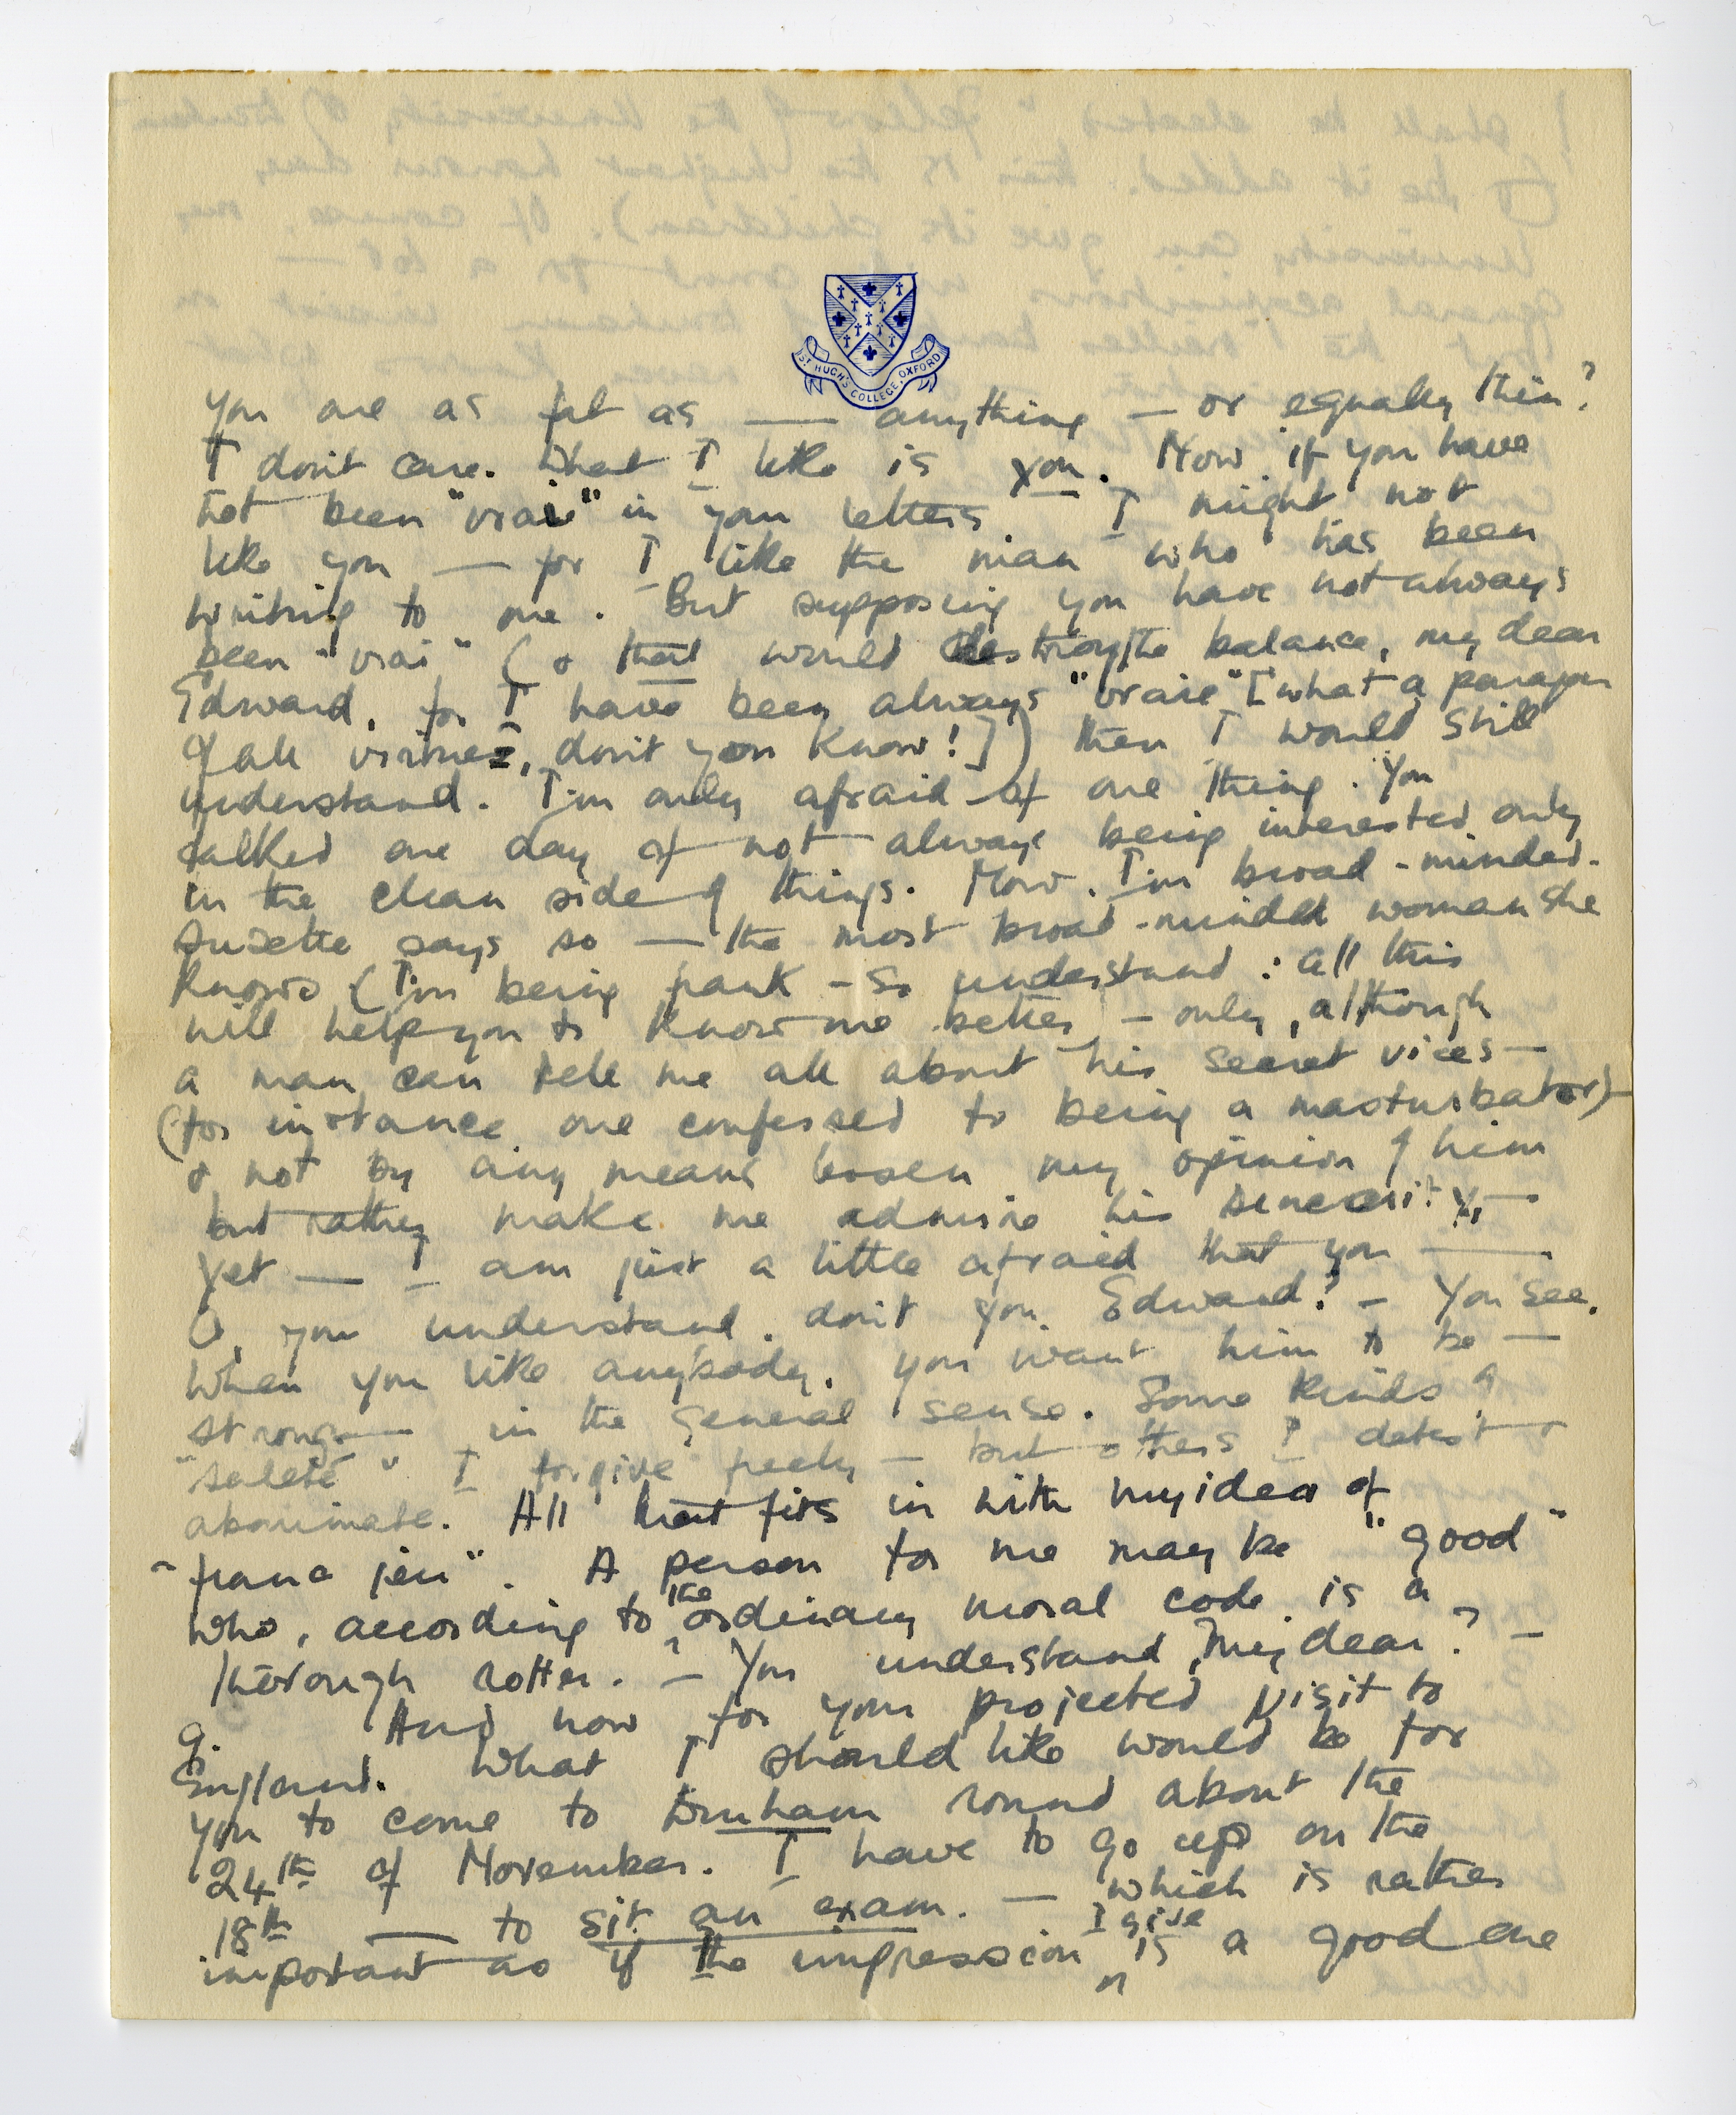 ST HUGH'S COLLEGE, OXFORD
you are as fat as — anything — or equally thin?
I don't care. What I like is you. Now if you have
not been "vrai" in your letters I might not
like you — for I like the man who has been
writing to me. But supposing you have not always
been "vrai" (& that would destroy the balance, my dear
Edward, for I have been always "vraie" [what a paragon
of all virtues, don't you know!]) then I would still
understand. I'm only afraid of one thing. You
talked one day of not always being interested only
in the clean side of things. Now, I'm broad-minded.
Suzette says so — the most broad-minded woman she
knows (I'm being frank – so understand: all this
will help you to know me better – only, although
a man can tell me all about his secret vices —
(for instance one confessed to being a masturbator) –
& not by any means lessen my opinion of him
but rather make me admire his sincerity, —
yet — I am just a little afraid that you —
O, you understand, don't you, Edward? – You see,
when you like anybody, you want him to be —
strong — in the general sense. Some kinds of
"saleté" I forgive freely – but others I detest &
abominate. All that fits in with my idea of
"franc jeu". A person for me may be "good"
who, according to the ordinary moral code, is a
thorough rotter. – You understand, my dear? –
9. And now for your projected visit to
England. What I should like would be for
you to come to Durham round about the
24th of November. I have to go up on the
18th — to sit an exam. — which is rather
important as if the impression I give is a good one